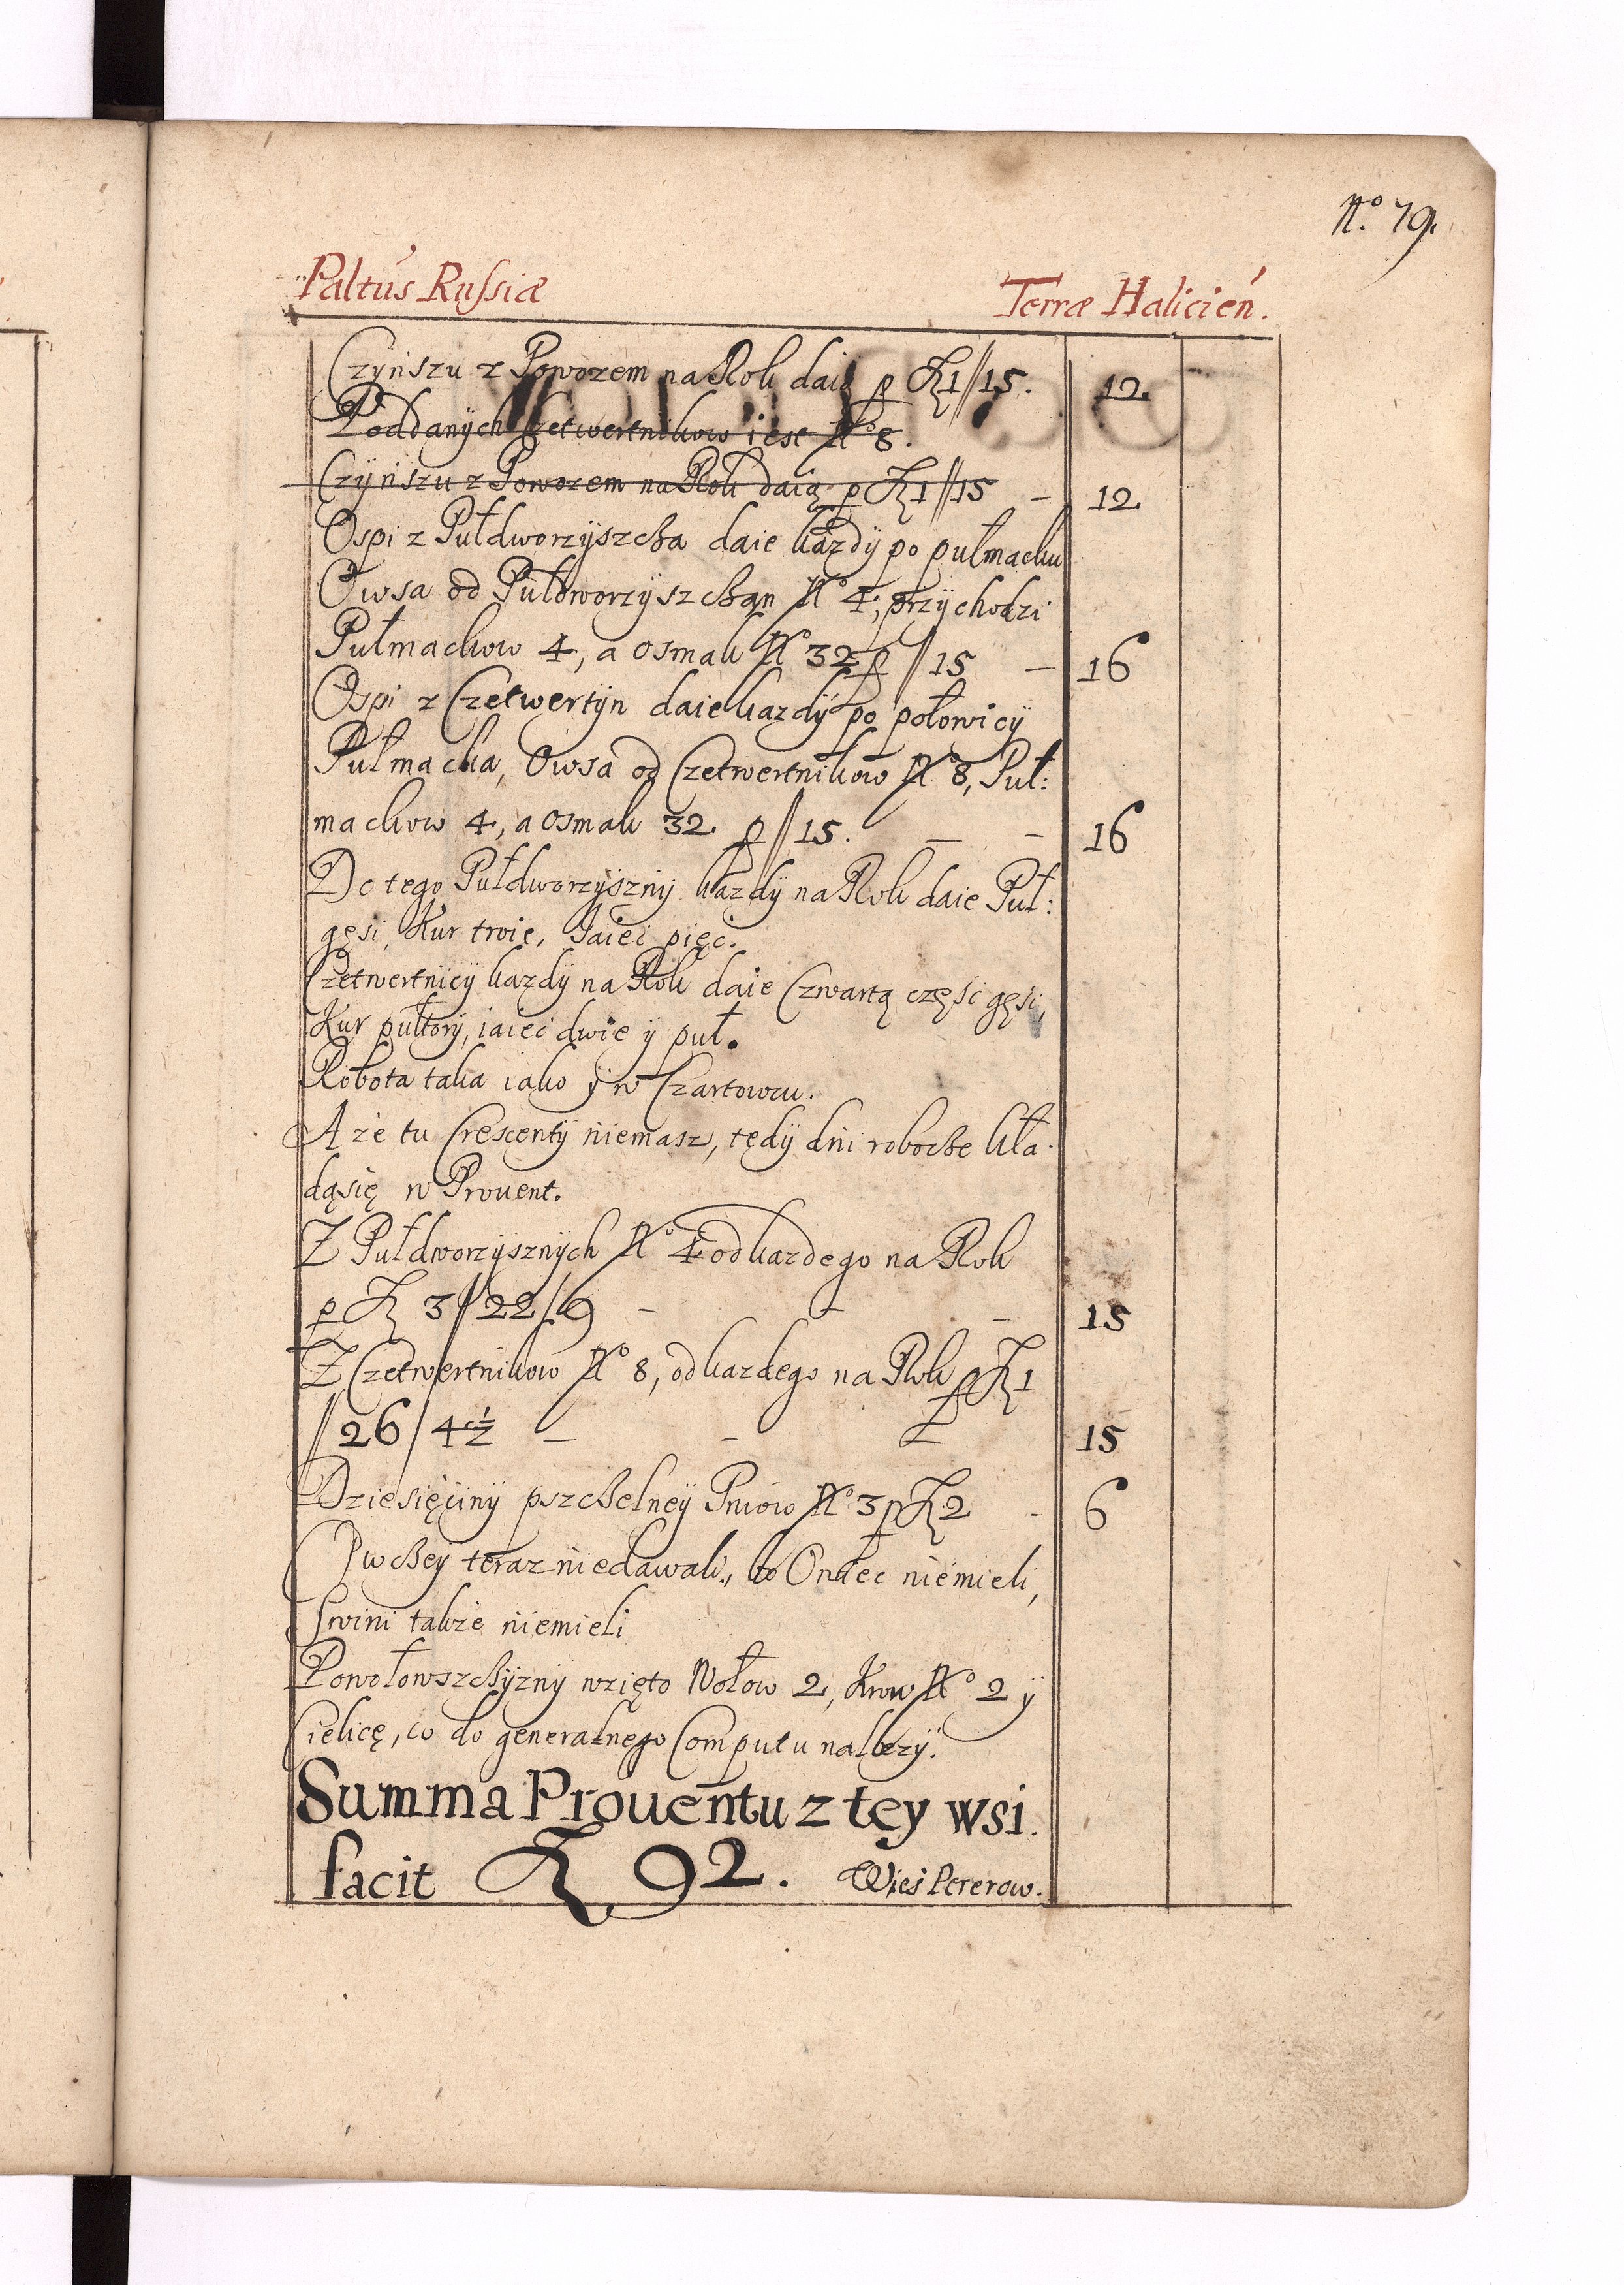 No. 79.
Paltus Russiæ Terræ Halicień.
Czynszu z Powozem na Rok daią p zł 1//15. 12.
Poddanych Czetwertnikow iest No 8.
Czynszu z Powozem na Rok daią p zł 1//15 – 12
Ospi z Pułdworzyszcża daie kazdy po pułmacku
Owsa od Pułdworzyszcżan No 4, przychodzi
Pułmackow 4, a osmak No 32 p //15 – 16
Ospi z Czetwertyn daie kazdy po połowicy
Pułmacka, Owsa od Czetwertnikow No 8, Puł:
mackow 4, a osmak 32 p //15. – – 16
Do tego Pułdworzyszny kazdy na Rok daie Puł:
gęsi, Kur troie, Jaiec pięc.
Czetwertnicy kazdy na Rok daie Czwartą częsc gęsi,
Kur pułtory, iaiec dwie y puł.
Robota taka iako y w Czartowcu.
A że tu Crescenty niemasz, tedy dni robocże kła.
dąsię w Prouent.
Z Pułdworzysznych No 4 od kazdego na Rok
p zł 3//22/9 – – – 15
Z Czetwertnikow No 8, od kazdego na Rok p zł 1
//26/4½ – – – 15
Dziesięciny pszcżelney Pniow No 3 p zł 2 – 6
Owcżey teraz niedawali, bo Owiec niemieli,
Swini także niemieli
Powołowszcżyzny wzięto Wołow 2, Krow No 2 y
Cielicę, co do generalnego Computu nalezy.
Summa Prouentu z tey wsi
facit zł 92. Wieś Pererow.